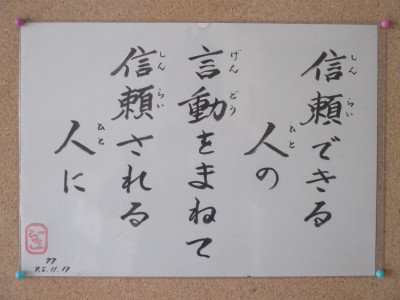 信頼できる
人の
言動をまねて
信頼される
人に
しん らい
ひと
げん どう
しん らい
ひと
77
R5.11.17